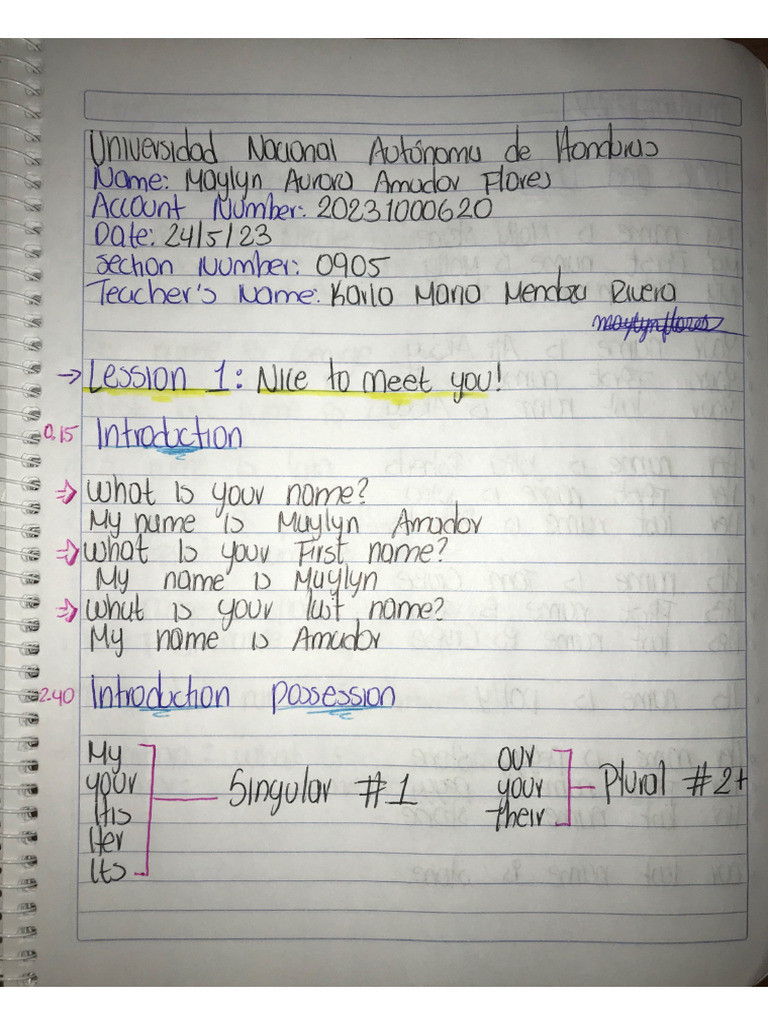 Universidad Nacional Autónoma de Honduras
Name: Maylyn Aurora Amador Flores
Account Number: 20231000620
Date: 24/5/23
Section Number: 0905
Teacher's Name: Karlo Mario Mendoza Rivera
maylynflores
→ Lession 1: Nice to meet you!
0.15 Introduction
⇒ What is your name?
My name is Maylyn Amador
⇒ What is your First name?
My name is Maylyn
⇒ What is your last name?
My name is Amador
2.40 Introduction possession
My
your
His
Her
Its
Singular #1
our
your
their
Plural #2+